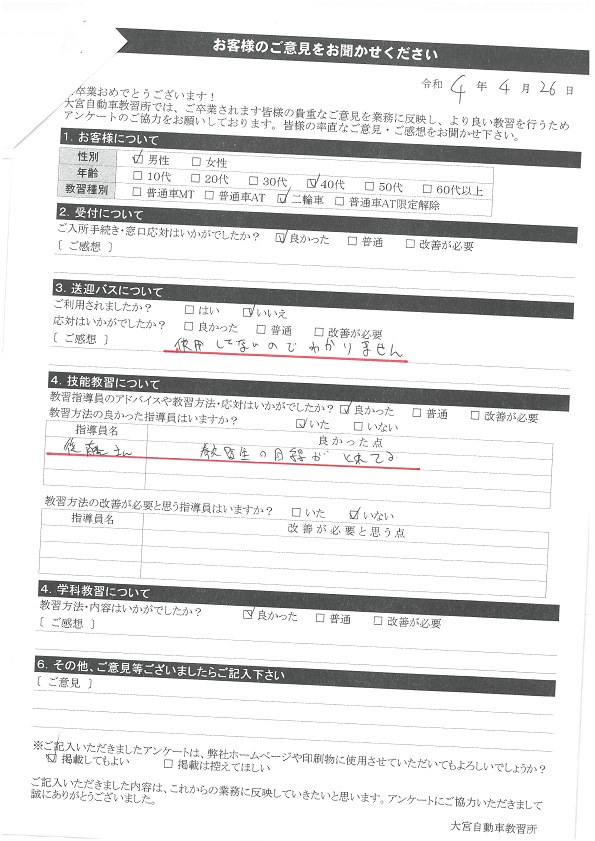 お客様のご意見をお聞かせください
令和 4 年 4 月 26 日
卒業おめでとうございます！
大宮自動車教習所では、ご卒業されます皆様の貴重なご意見を業務に反映し、より良い教習を行うため
アンケートのご協力をお願いしております。皆様の率直なご意見・ご感想をお聞かせ下さい。
1. お客様について
性別 ☑ 男性 □ 女性
年齢 □ 10代 □ 20代 □ 30代 ☑ 40代 □ 50代 □ 60代以上
教習種別 □ 普通車MT □ 普通車AT ☑ 二輪車 □ 普通車AT限定解除
2. 受付について
ご入所手続き・窓口応対はいかがでしたか？ ☑ 良かった □ 普通 □ 改善が必要
〔 ご感想 〕
3. 送迎バスについて
ご利用されましたか？ □ はい ☑ いいえ
応対はいかがでしたか？ □ 良かった □ 普通 □ 改善が必要
〔 ご感想 〕 使用してないのでわかりません
4. 技能教習について
教習指導員のアドバイスや教習方法・応対はいかがでしたか？ ☑ 良かった □ 普通 □ 改善が必要
教習方法の良かった指導員はいますか？ ☑ いた □ いない
指導員名 良かった点
さん 教習生の目線がとれてる
教習方法の改善が必要と思う指導員はいますか？ □ いた ☑ いない
指導員名 改善が必要と思う点
4. 学科教習について
教習方法・内容はいかがでしたか？ ☑ 良かった □ 普通 □ 改善が必要
〔 ご感想 〕
6. その他、ご意見等ございましたらご記入下さい
〔 ご意見 〕
※ご記入いただきましたアンケートは、弊社ホームページや印刷物に使用させていただいてもよろしいでしょうか？
☑ 掲載してもよい □ 掲載は控えてほしい
ご記入いただきました内容は、これからの業務に反映していきたいと思います。アンケートにご協力いただきまして
誠にありがとうございました。
大宮自動車教習所